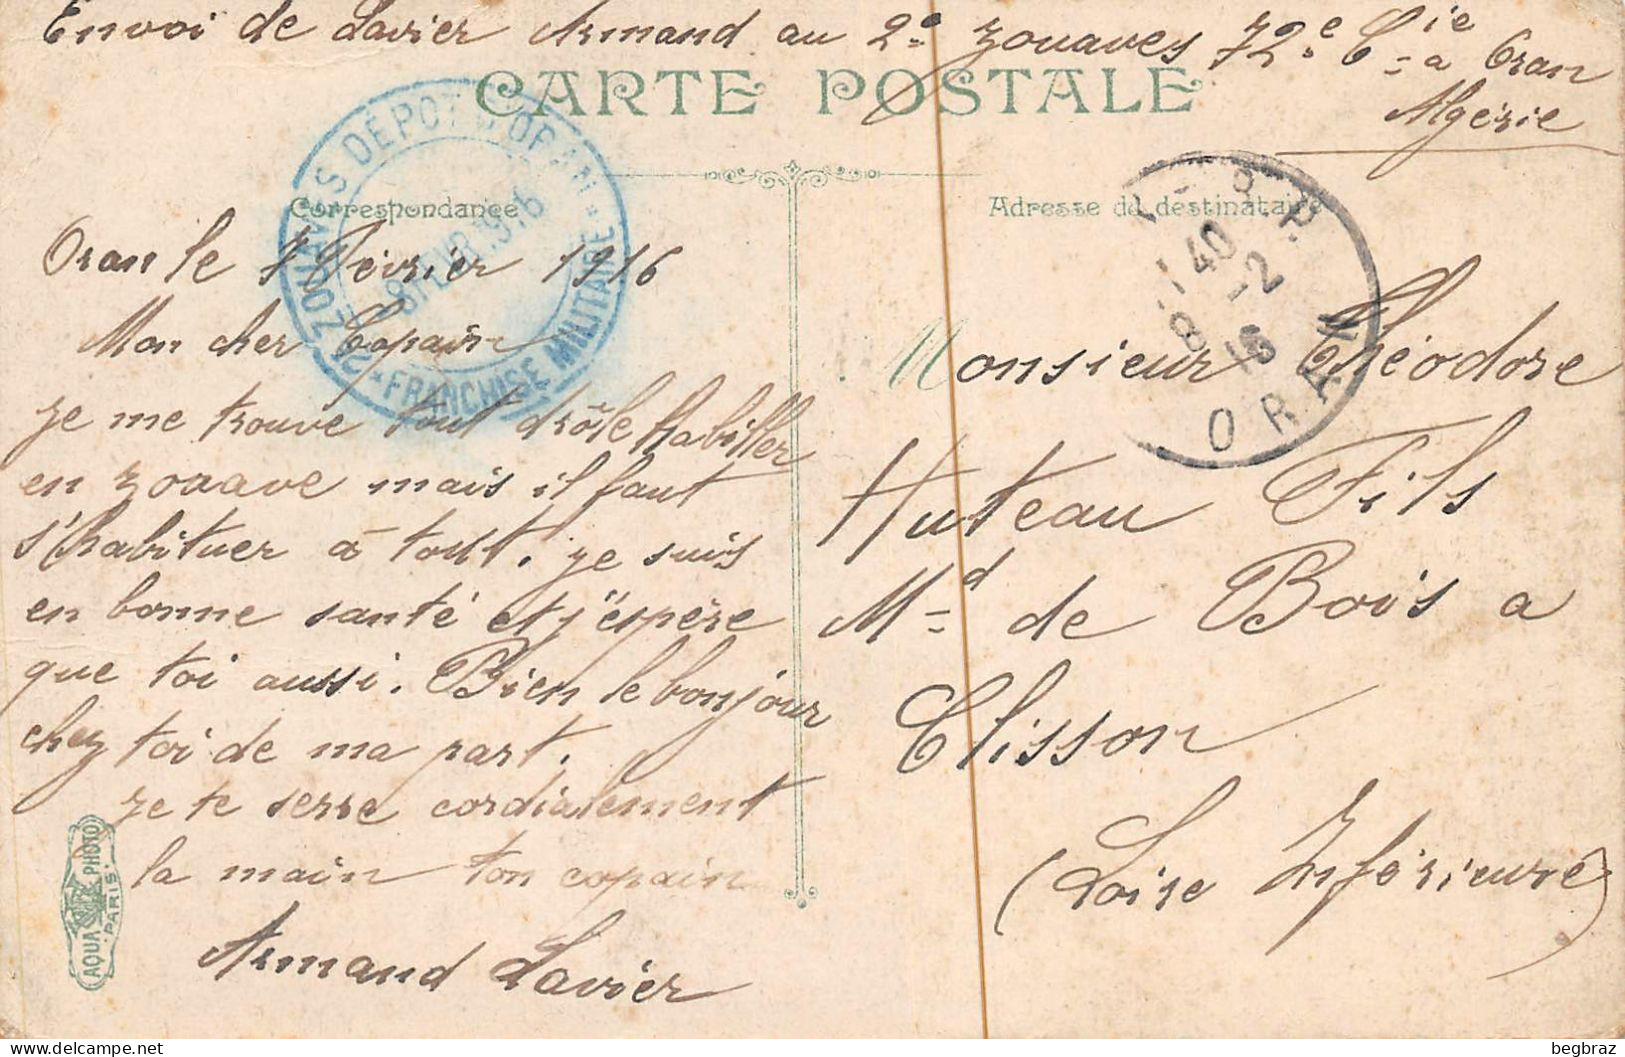 Envoi de Lavier Armand au 2e zouaves 72e Cie a Oran
Algérie
CARTE POSTALE
Correspondance
Adresse du destinataire
2e ZOUAVES DÉPOT D'ORAN
8 FEVR 1916
* FRANCHISE MILITAIRE *
Oran le 7 Février 1916
Mon cher Copain
je me trouve tout drôle habiller
en zouave mais il faut
s'habituer à tout. je suis
en bonne santé et j'éspère
que toi aussi. Bien le bonjour
chez toi de ma part.
je te serre cordialement
la main ton copain
Armand Lavier
AQUA PHOTO
PARIS
40
8 -2
16
ORAN
Monsieur Théodore
Huteau Fils
Md de Bois a
Clisson
(Loire Inférieure)
begbraz